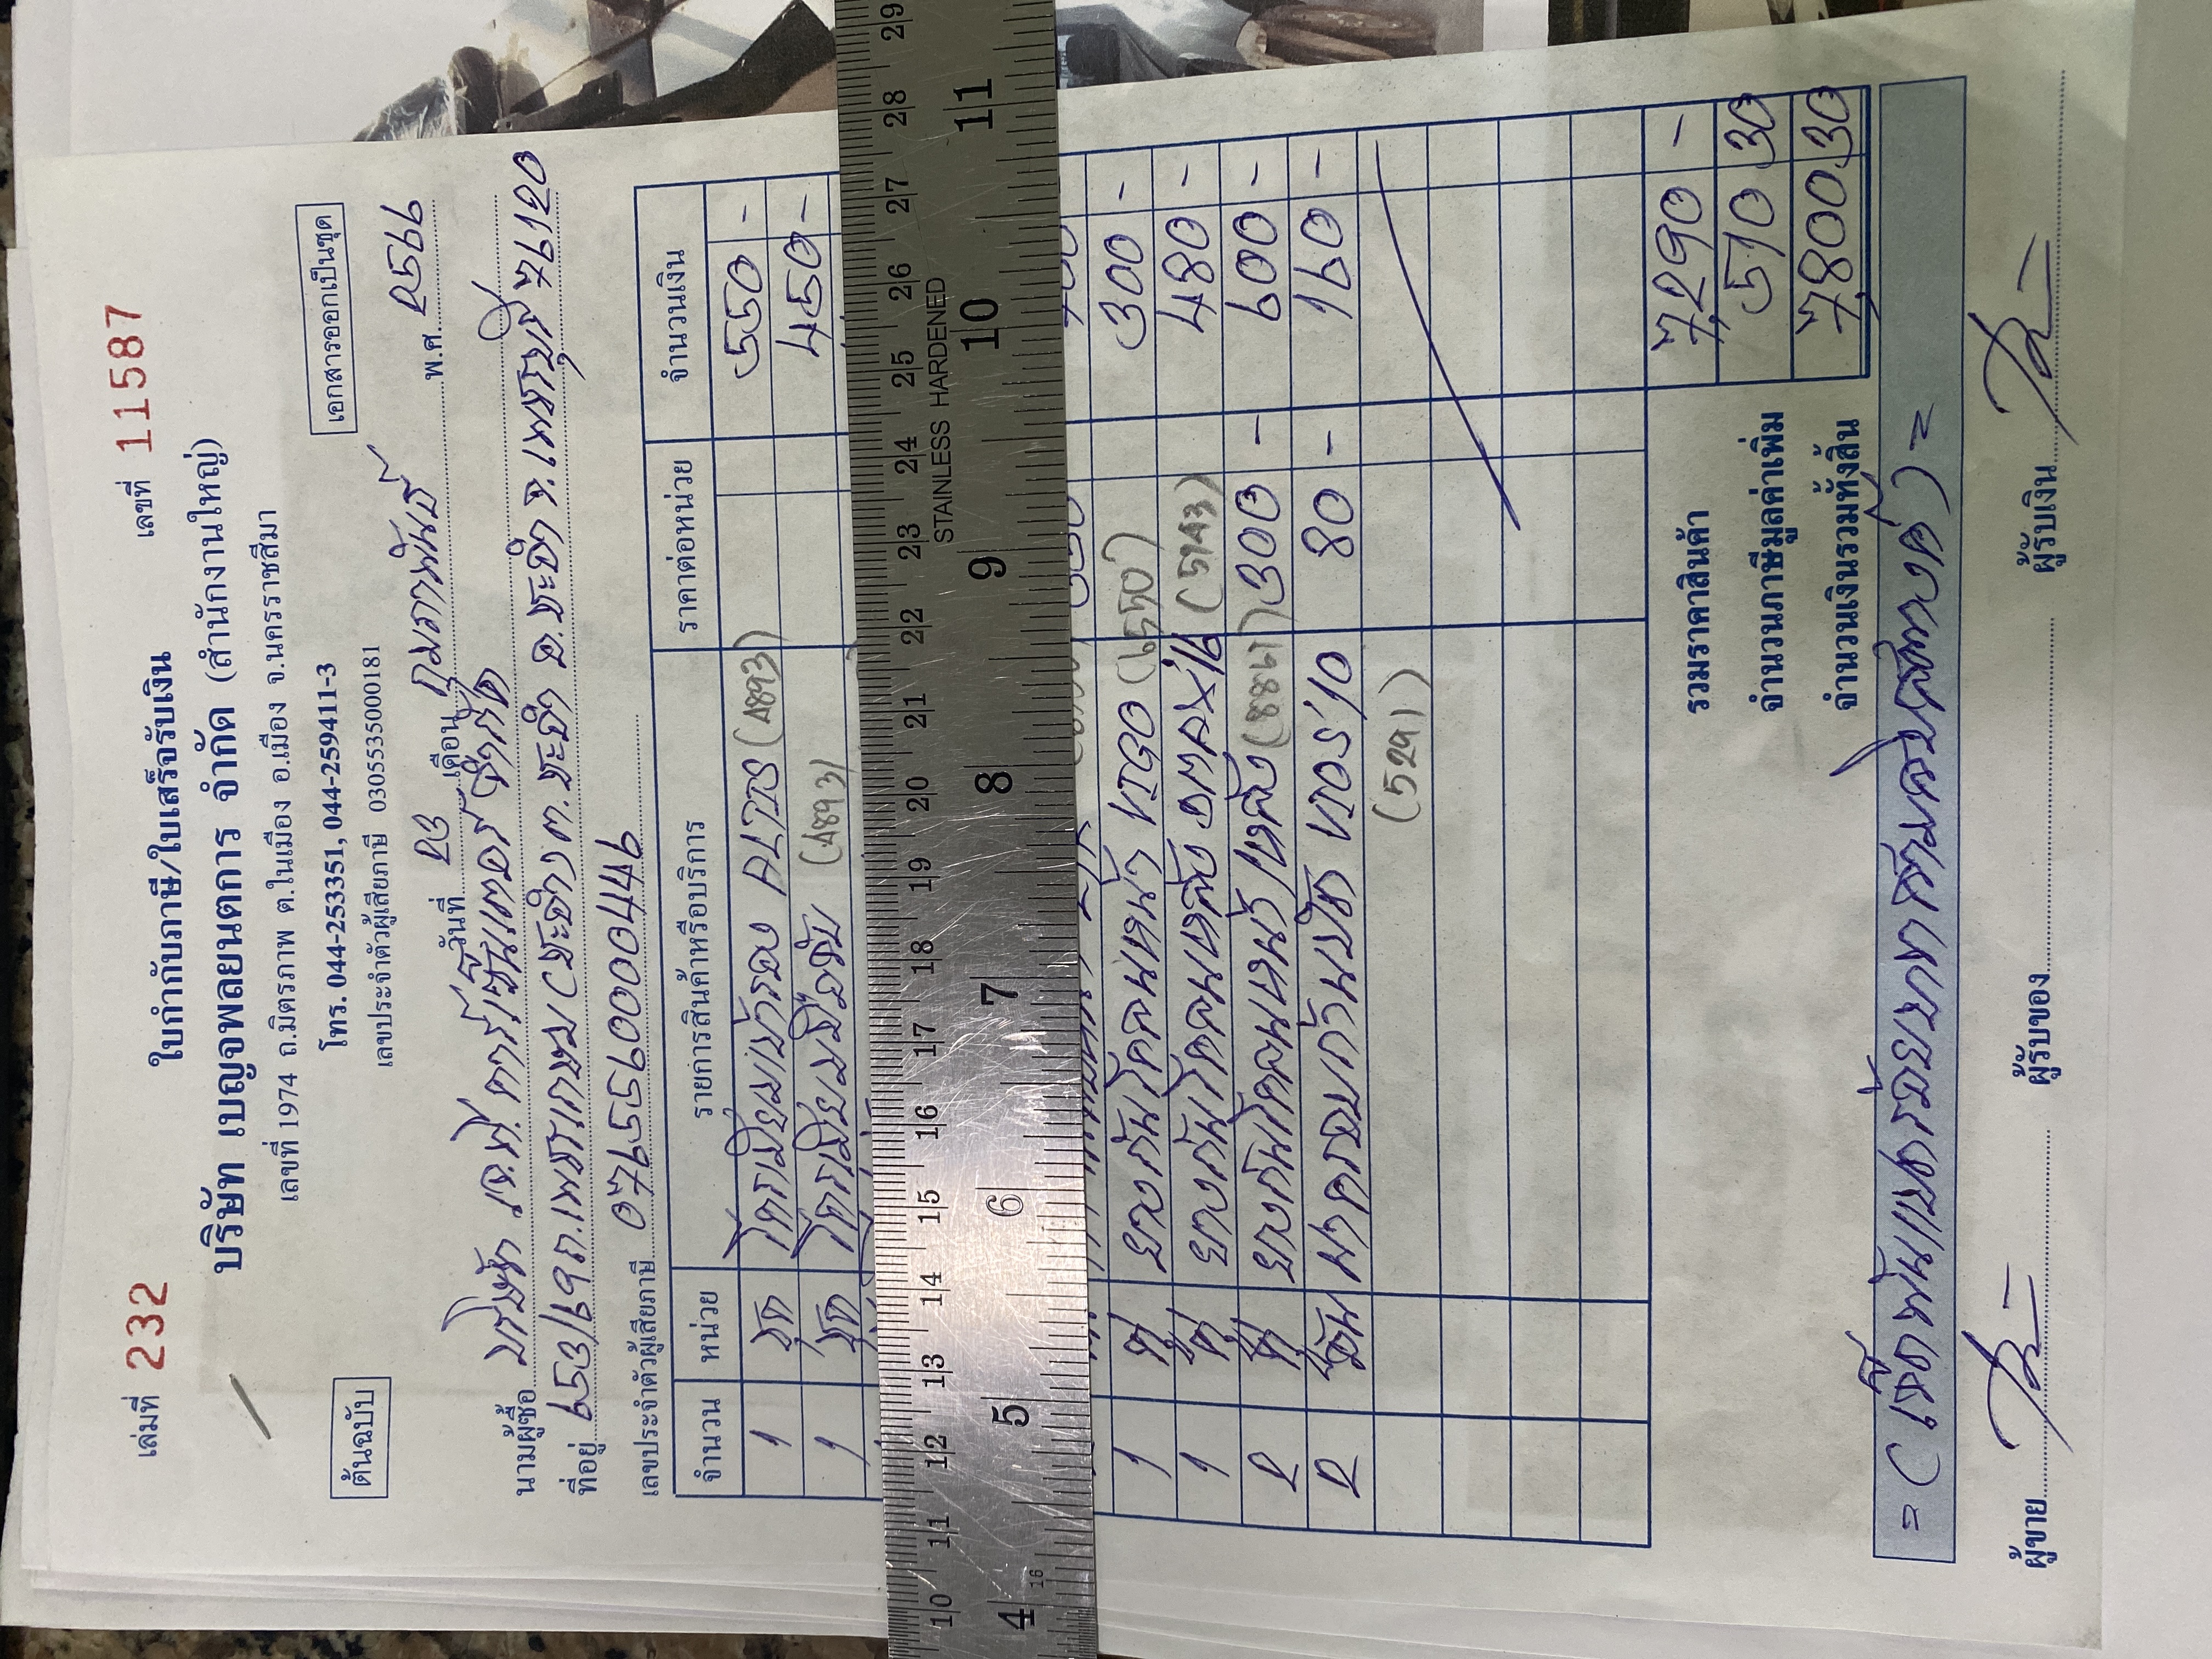 เล่มที่ 232 เลขที่ 11587
ใบกำกับภาษี/ใบเสร็จรับเงิน
บริษัท เบญจพลยนตการ จำกัด (สำนักงานใหญ่)
เลขที่ 1974 ถ.มิตรภาพ ต.ในเมือง อ.เมือง จ.นครราชสีมา
ต้นฉบับ โทร. 044-253351, 044-259411-3 เอกสารออกเป็นชุด
เลขประจำตัวผู้เสียภาษี 0305535000181
วันที่ 23 เดือน กุมภาพันธ์ พ.ศ. 2566
นามผู้ซื้อ บริษัท เจ.ที. คาร์เซ็นเตอร์
ที่อยู่ 653/16 ถ.เพชรเกษม
เลขประจำตัวผู้เสียภาษี
จำนวน หน่วย รายการสินค้าหรือบริการ ราคาต่อหน่วย จำนวนเงิน
1 ชุด (4893) 550 -
1 ชุด (4893) 450 -
1 คู่ ยางกันโคลนหน้า VIGO (6550) 300 -
1 คู่ ยางกันโคลนหลัง DMAX'16 (5143) 480 -
2 คู่ ยางกันโคลนหน้า/หลัง 300 - 600 -
2 อัน VIOS'10 80 - 160 -
(5291)
รวมราคาสินค้า 7,290 -
จำนวนภาษีมูลค่าเพิ่ม 510 30
จำนวนเงินรวมทั้งสิ้น 7,800 30
= (เจ็ดพันแปดร้อยบาทสามสิบสตางค์) =
ผู้ขาย ผู้รับของ ผู้รับเงิน
10 11 12 13 14 15 16 17 18 19 20 21 22 23 24 25 26 27 28 29
STAINLESS HARDENED
4 5 6 7 8 9 10 11
16